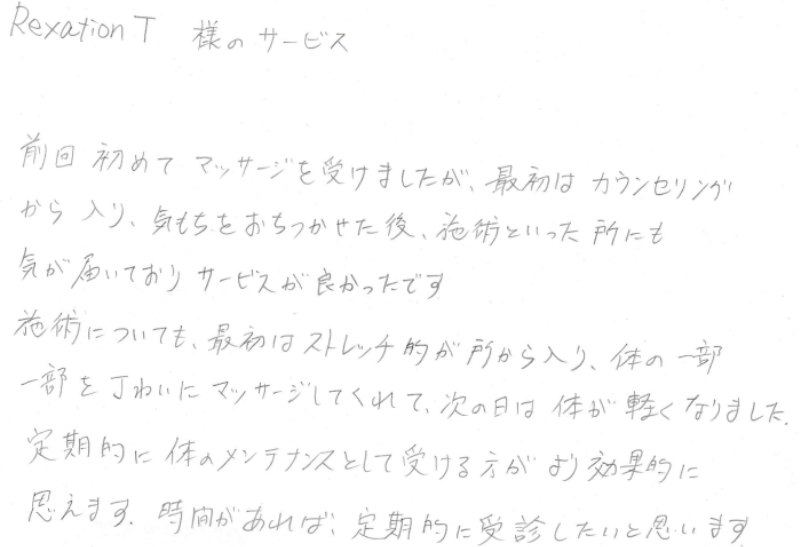 Rexation T 様のサービス
前回 初めて マッサージを受けましたが、最初は カウンセリング
から 入り、気もちをおちつかせた後、施術といった所にも
気が届いており サービスが良かったです
施術についても、最初はストレッチ的が所から入り、体の一部
一部を丁わいにマッサージしてくれて、次の日は 体が 軽くなりました。
定期的に 体のメンテナンスとして受ける方が より効果的に
思えます。時間があれば、定期的に受診したいと思います